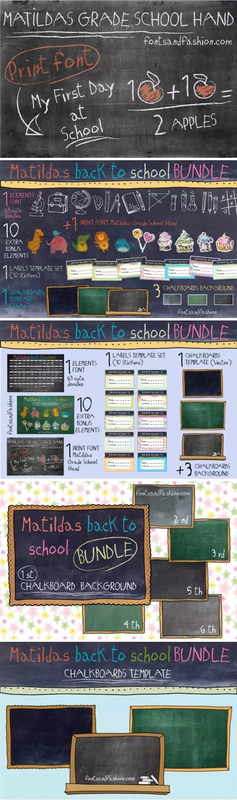 MATILDAS GRADE SCHOOL HAND
fontsandfashion.com
Print font
My First Day
at
School
1 + 1 =
2 APPLES
Matildas back to school BUNDLE
1 ELEMENTS
FONT
63 cute
doodles
+1 PRINT FONT Matildas Grade School Hand
10
EXTRA
BONUS
ELEMENTS
1 LABELS TEMPLATE SET
(10 Stickers)
1 CHALKBOARDS
TEMPLATE
3 CHALKBOARDS BACKGROUND
fontsandfashion.com
Matildas back to school BUNDLE
1 ELEMENTS
FONT
63 cute
doodles
10
EXTRA
BONUS
ELEMENTS
1 PRINT
FONT
Matildas
Grade School
Hand
1 LABELS TEMPLATE SET
(10 Stickers)
1 CHALKBOARDS
TEMPLATE (Vector)
+3 CHALKBOARDS
BACKGROUND
fontsandfashion
Matildas back to
school BUNDLE
1st
CHALKBOARD BACKGROUND
fontsandfashion.com
2nd
3rd
5th
4th
6th
Matildas back to school BUNDLE
CHALKBOARDS TEMPLATE
fontsandfashion.com